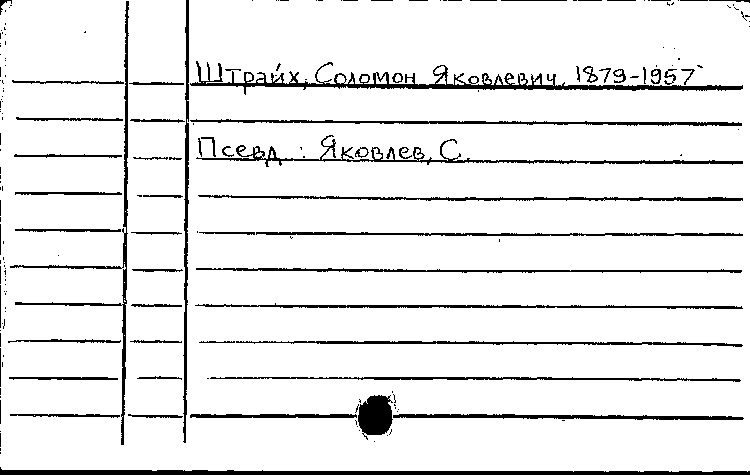 Штрайх, Соломон Яковлевич, 1879-1957
Псевд.: Яковлев, С.